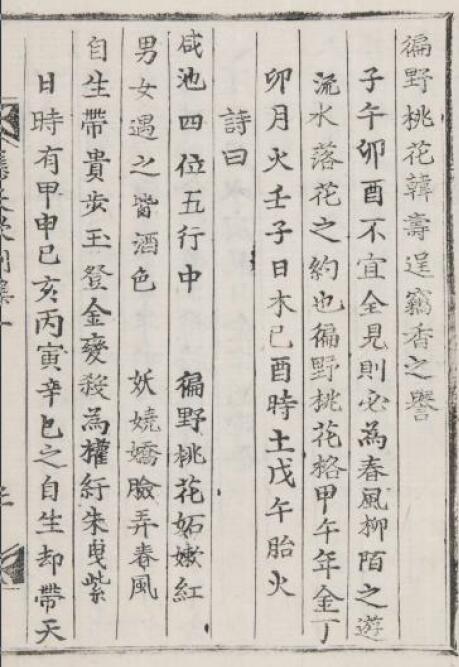 徧野桃花韓壽逞竊香之譽
子午卯酉不宜全見則必為春風柳陌之遊
流水落花之約也徧野桃花格甲午年金丁
卯月火壬子日木己酉時土戊午胎火
詩曰
咸池四位五行中　徧野桃花妬嫩紅
男女遇之皆酒色　妖嬈嬌臉弄春風
自生帶貴步玉登金變殺為權紆朱曳紫
日時有甲申己亥丙寅辛巳之自生却帶天